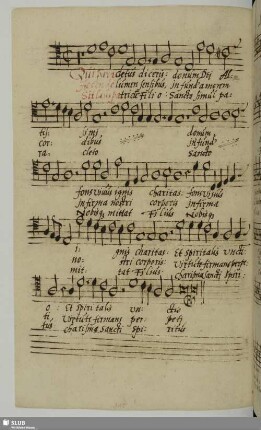 Qui paracletus diceris donum Dei Al-
Accende lumen sensibus, infunde amorem
Sit laus patri cum filio Sancto simul pa-
tis simi, donum
cor dibus infund
ra cleto Sancto
fons vivus ignis charitas fons vivus
Infirma nostri corporis Infirma
Nobisq mittat filius Nobisq
ignis charitas. Et spiritalis uncti
no stri corporis: Virtute firmans perpe
mit tat filius Charisma sancti Spiri
o Et spiritalis un ctio
ti, Virtute firmans per peti
tus charisma sancti spi ritus
SLUB